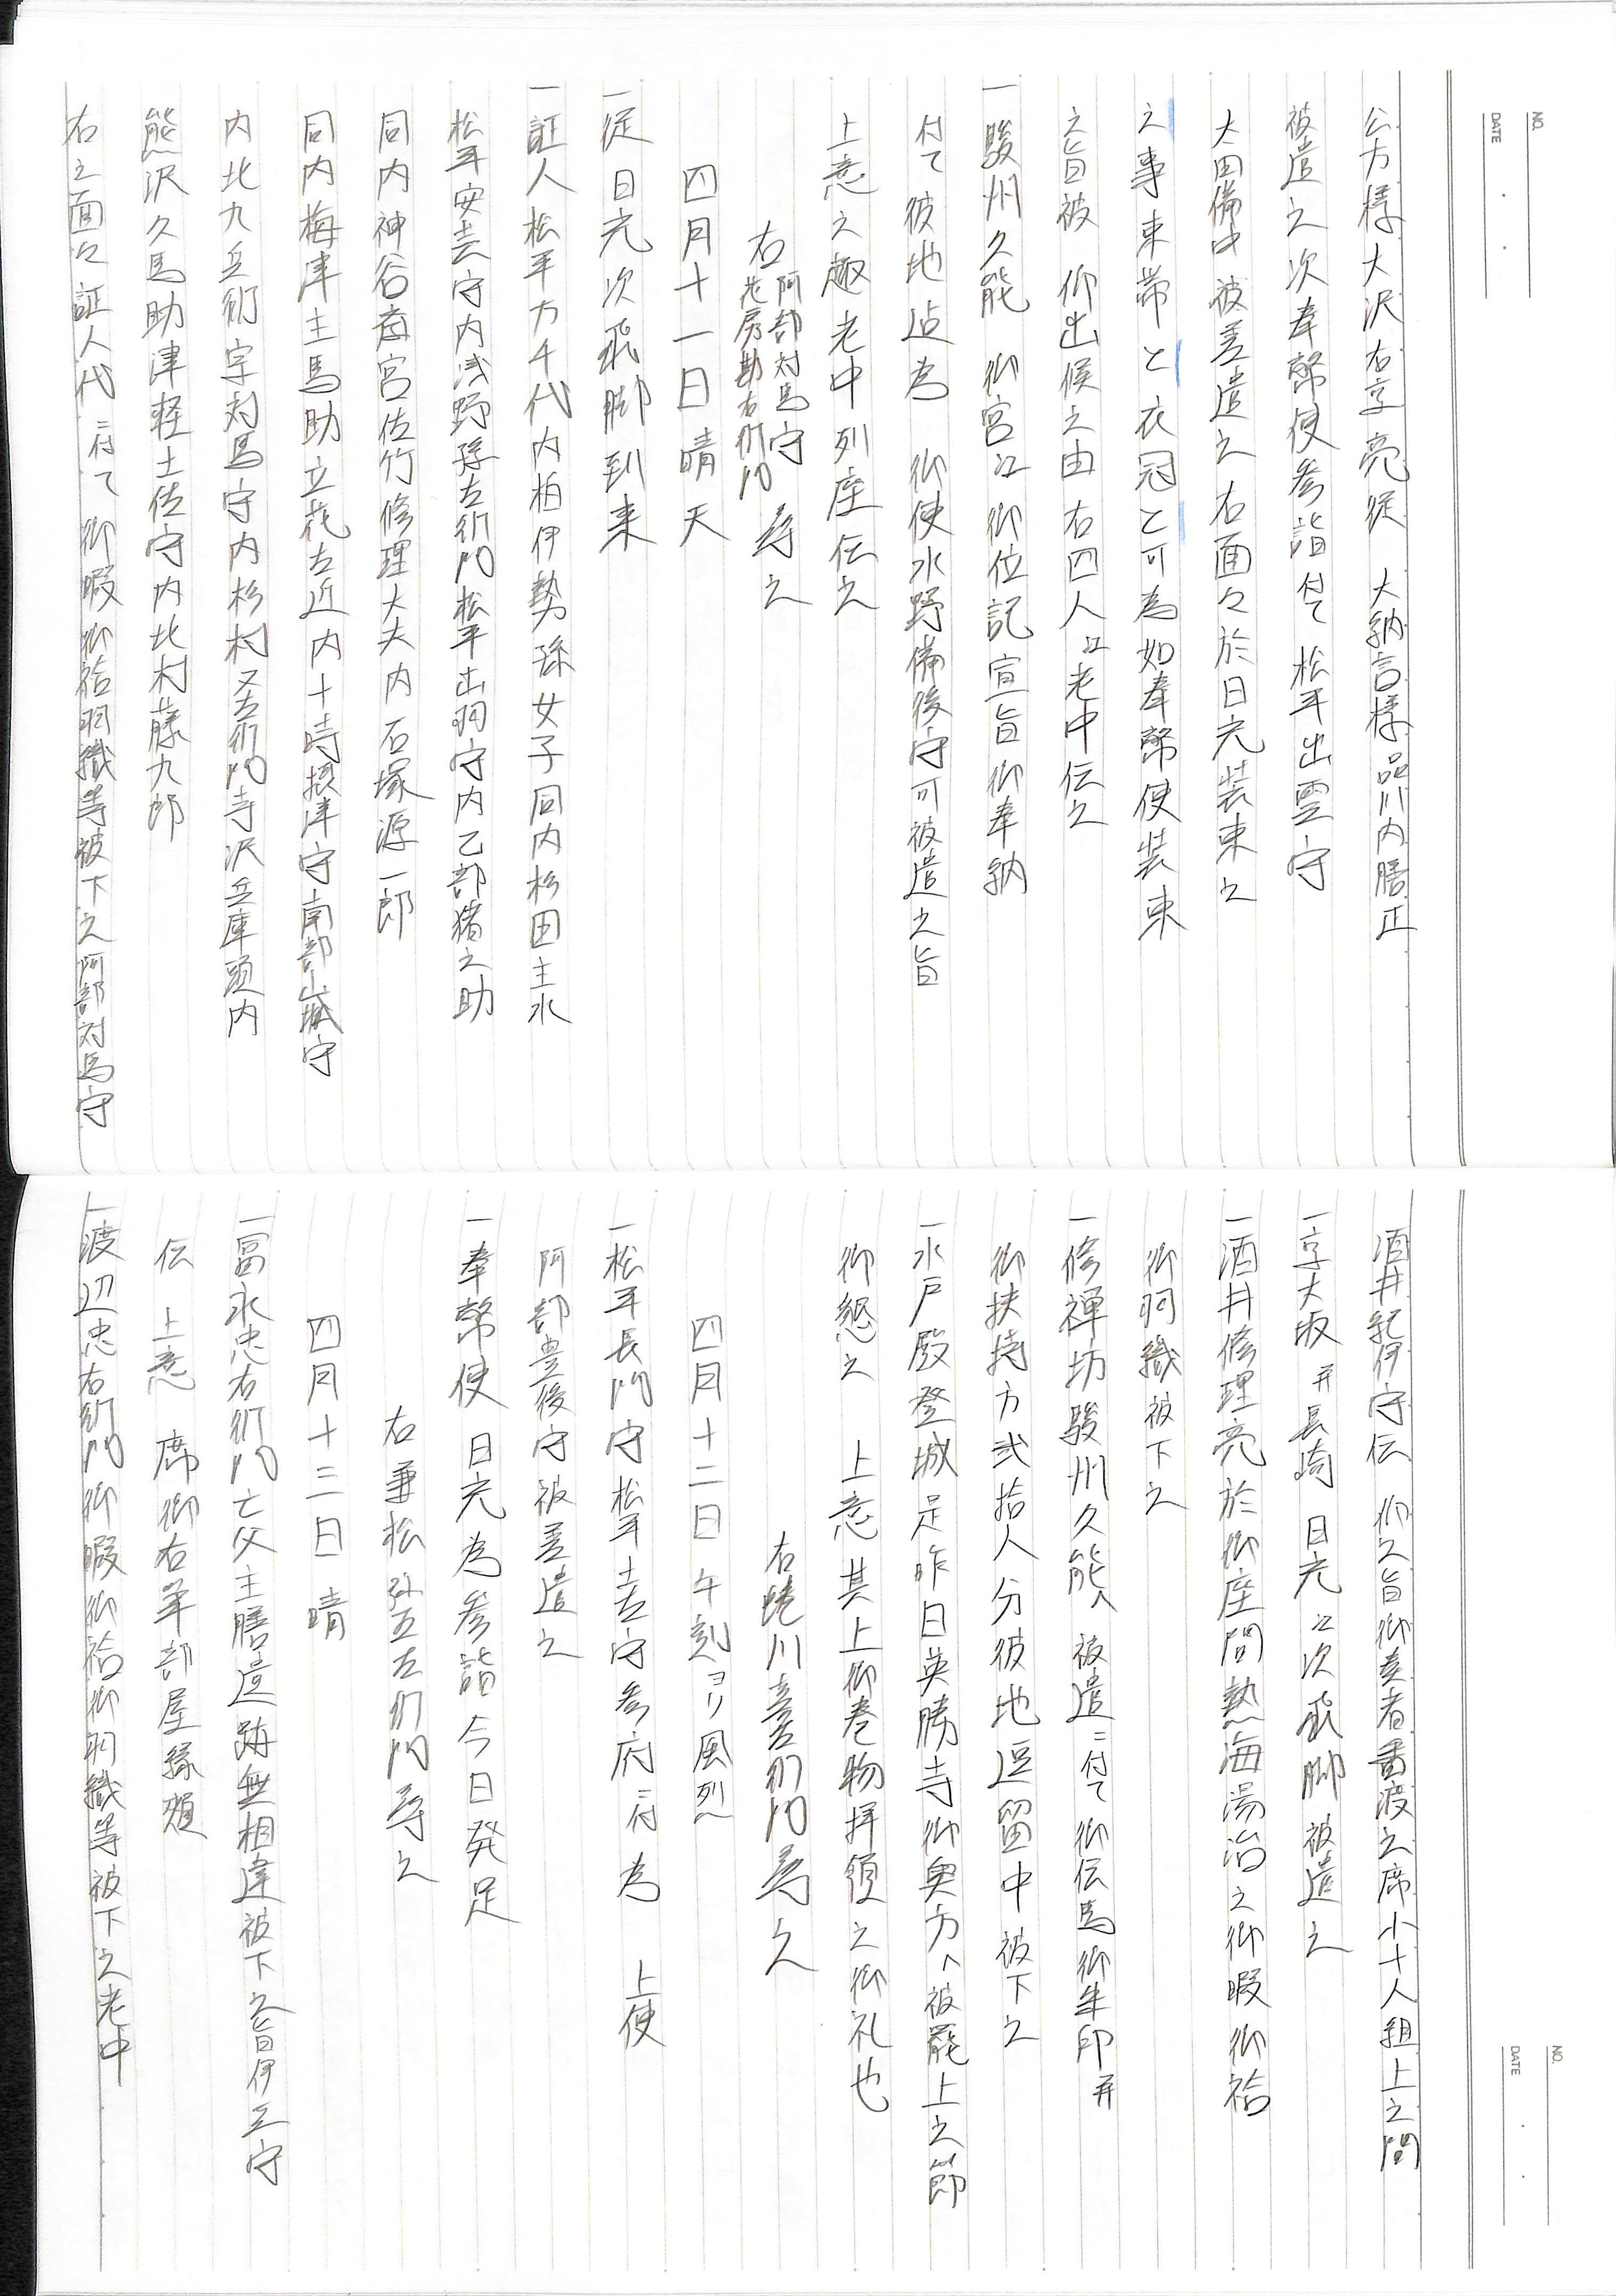 NO.
DATE
公方様大沢右京亮従 大納言様品川内膳正
被遣之次奉幣使参詣付て松平出雲守
太田備中被差遣之右面々於日光装束之
之事束帯と衣冠と可為如奉幣使装束
之旨被 仰出候之由右四人江老中伝之
一駿州久能 御宮江御位記宣旨御奉納
付て彼地迠為 御使水野備後守可被遣之旨
上意之趣老中列座伝之
右 阿部対馬守 花房勘右衛門 奉之
四月十一日 晴天
一従日光次飛脚到来
一証人松平万千代内柏伊勢孫女子同内杉田主水
松平安芸守内浅野孫左衛門松平出羽守内乙部猪之助
同内神谷 宮佐竹修理大夫内石塚源一郎
同内梅津主馬助立花左近内十時摂津守南部山城守
内北九兵衛宗対馬守内杉村又左衛門寺沢兵庫頭内
熊沢久馬助津軽土佐守内北村藤九郎
右之面々証人代ニ付て御暇御袷羽織等被下之阿部対馬守
NO.
DATE
酒井紀伊守伝 仰之旨御奏者番渡之席小十人組上之間
一京大坂并長崎日光江次飛脚被遣之
一酒井修理亮於御座間熱海湯治之御暇御袷
御羽織被下之
一修禅坊駿州久能へ被遣ニ付て御伝馬御朱印并
御扶持方弐拾人分彼地逗留中被下之
一水戸殿登城是昨日英勝寺御奥方へ被罷上之節
御懇之 上意其上御巻物拝領之御礼也
右蜷川喜左衛門奉之
四月十二日 午刻ヨリ風烈
一松平長門守松平土佐守参府ニ付為 上使
阿部豊後守被差遣之
一奉幣使日光為参詣今日発足
右兼松弥五左衛門奉之
四月十三日 晴
一冨永忠右衛門亡父主膳遺跡無相違被下之旨伊豆守
伝 上意 席御右筆部屋縁頬
一渡辺忠右衛門御暇御袷御羽織等被下之老中